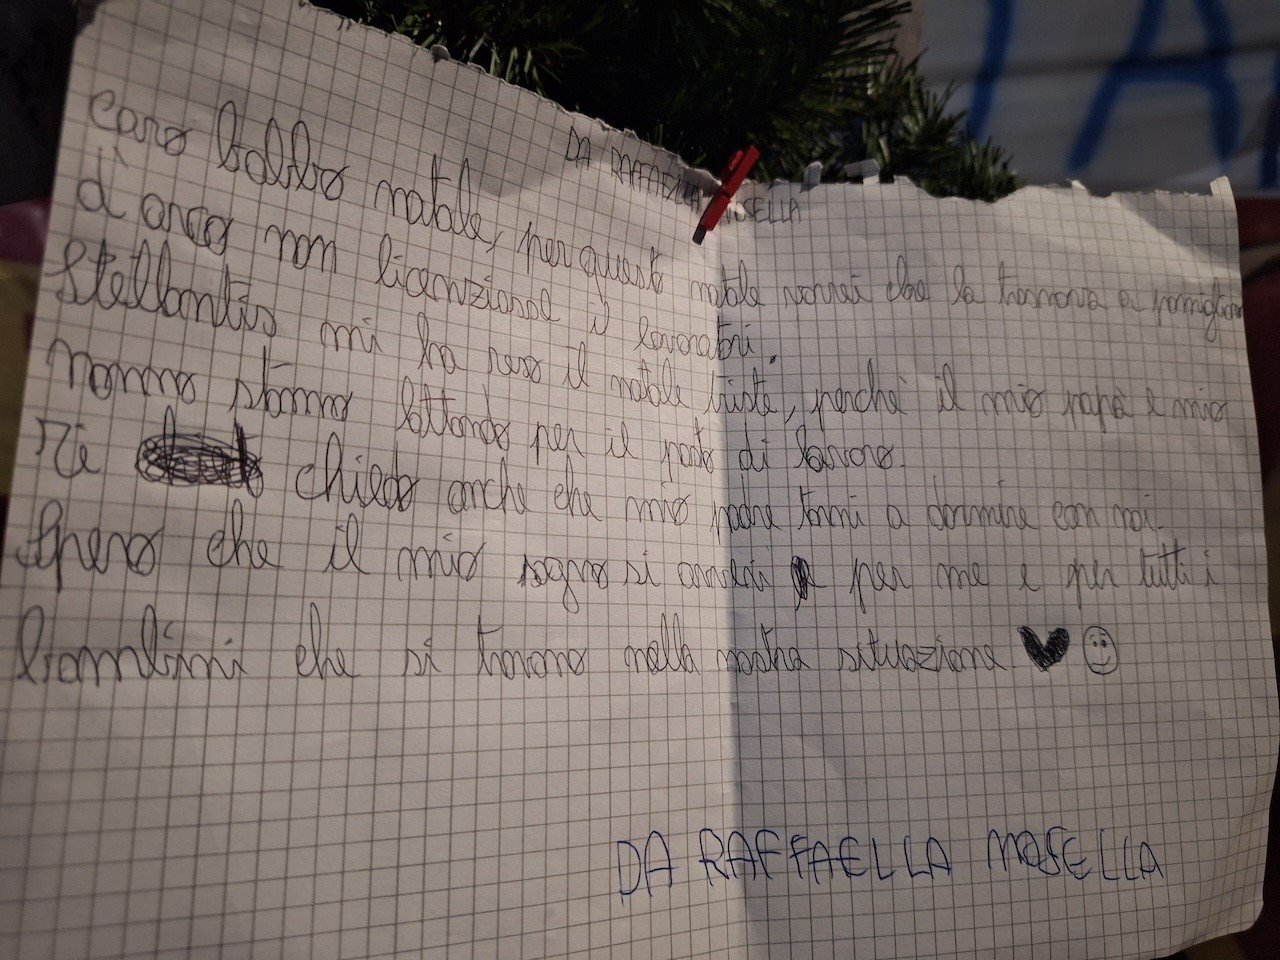 DA RAFFAELLA MOSELLA
caro babbo natale, per questo natale vorrei che la trasnova a pomiglian
d'arco non licenziasse i lavoratori.
Stellantis mi ha reso il natale triste, perchè il mio papà e mio
nonno stanno lottando per il posto di lavoro.
Ti chiedo anche che mio padre torni a dormire con noi.
Spero che il mio sogno si avveri per me e per tutti i
bambini che si trovano nella nostra situazione
DA RAFFAELLA MOSELLA
TA